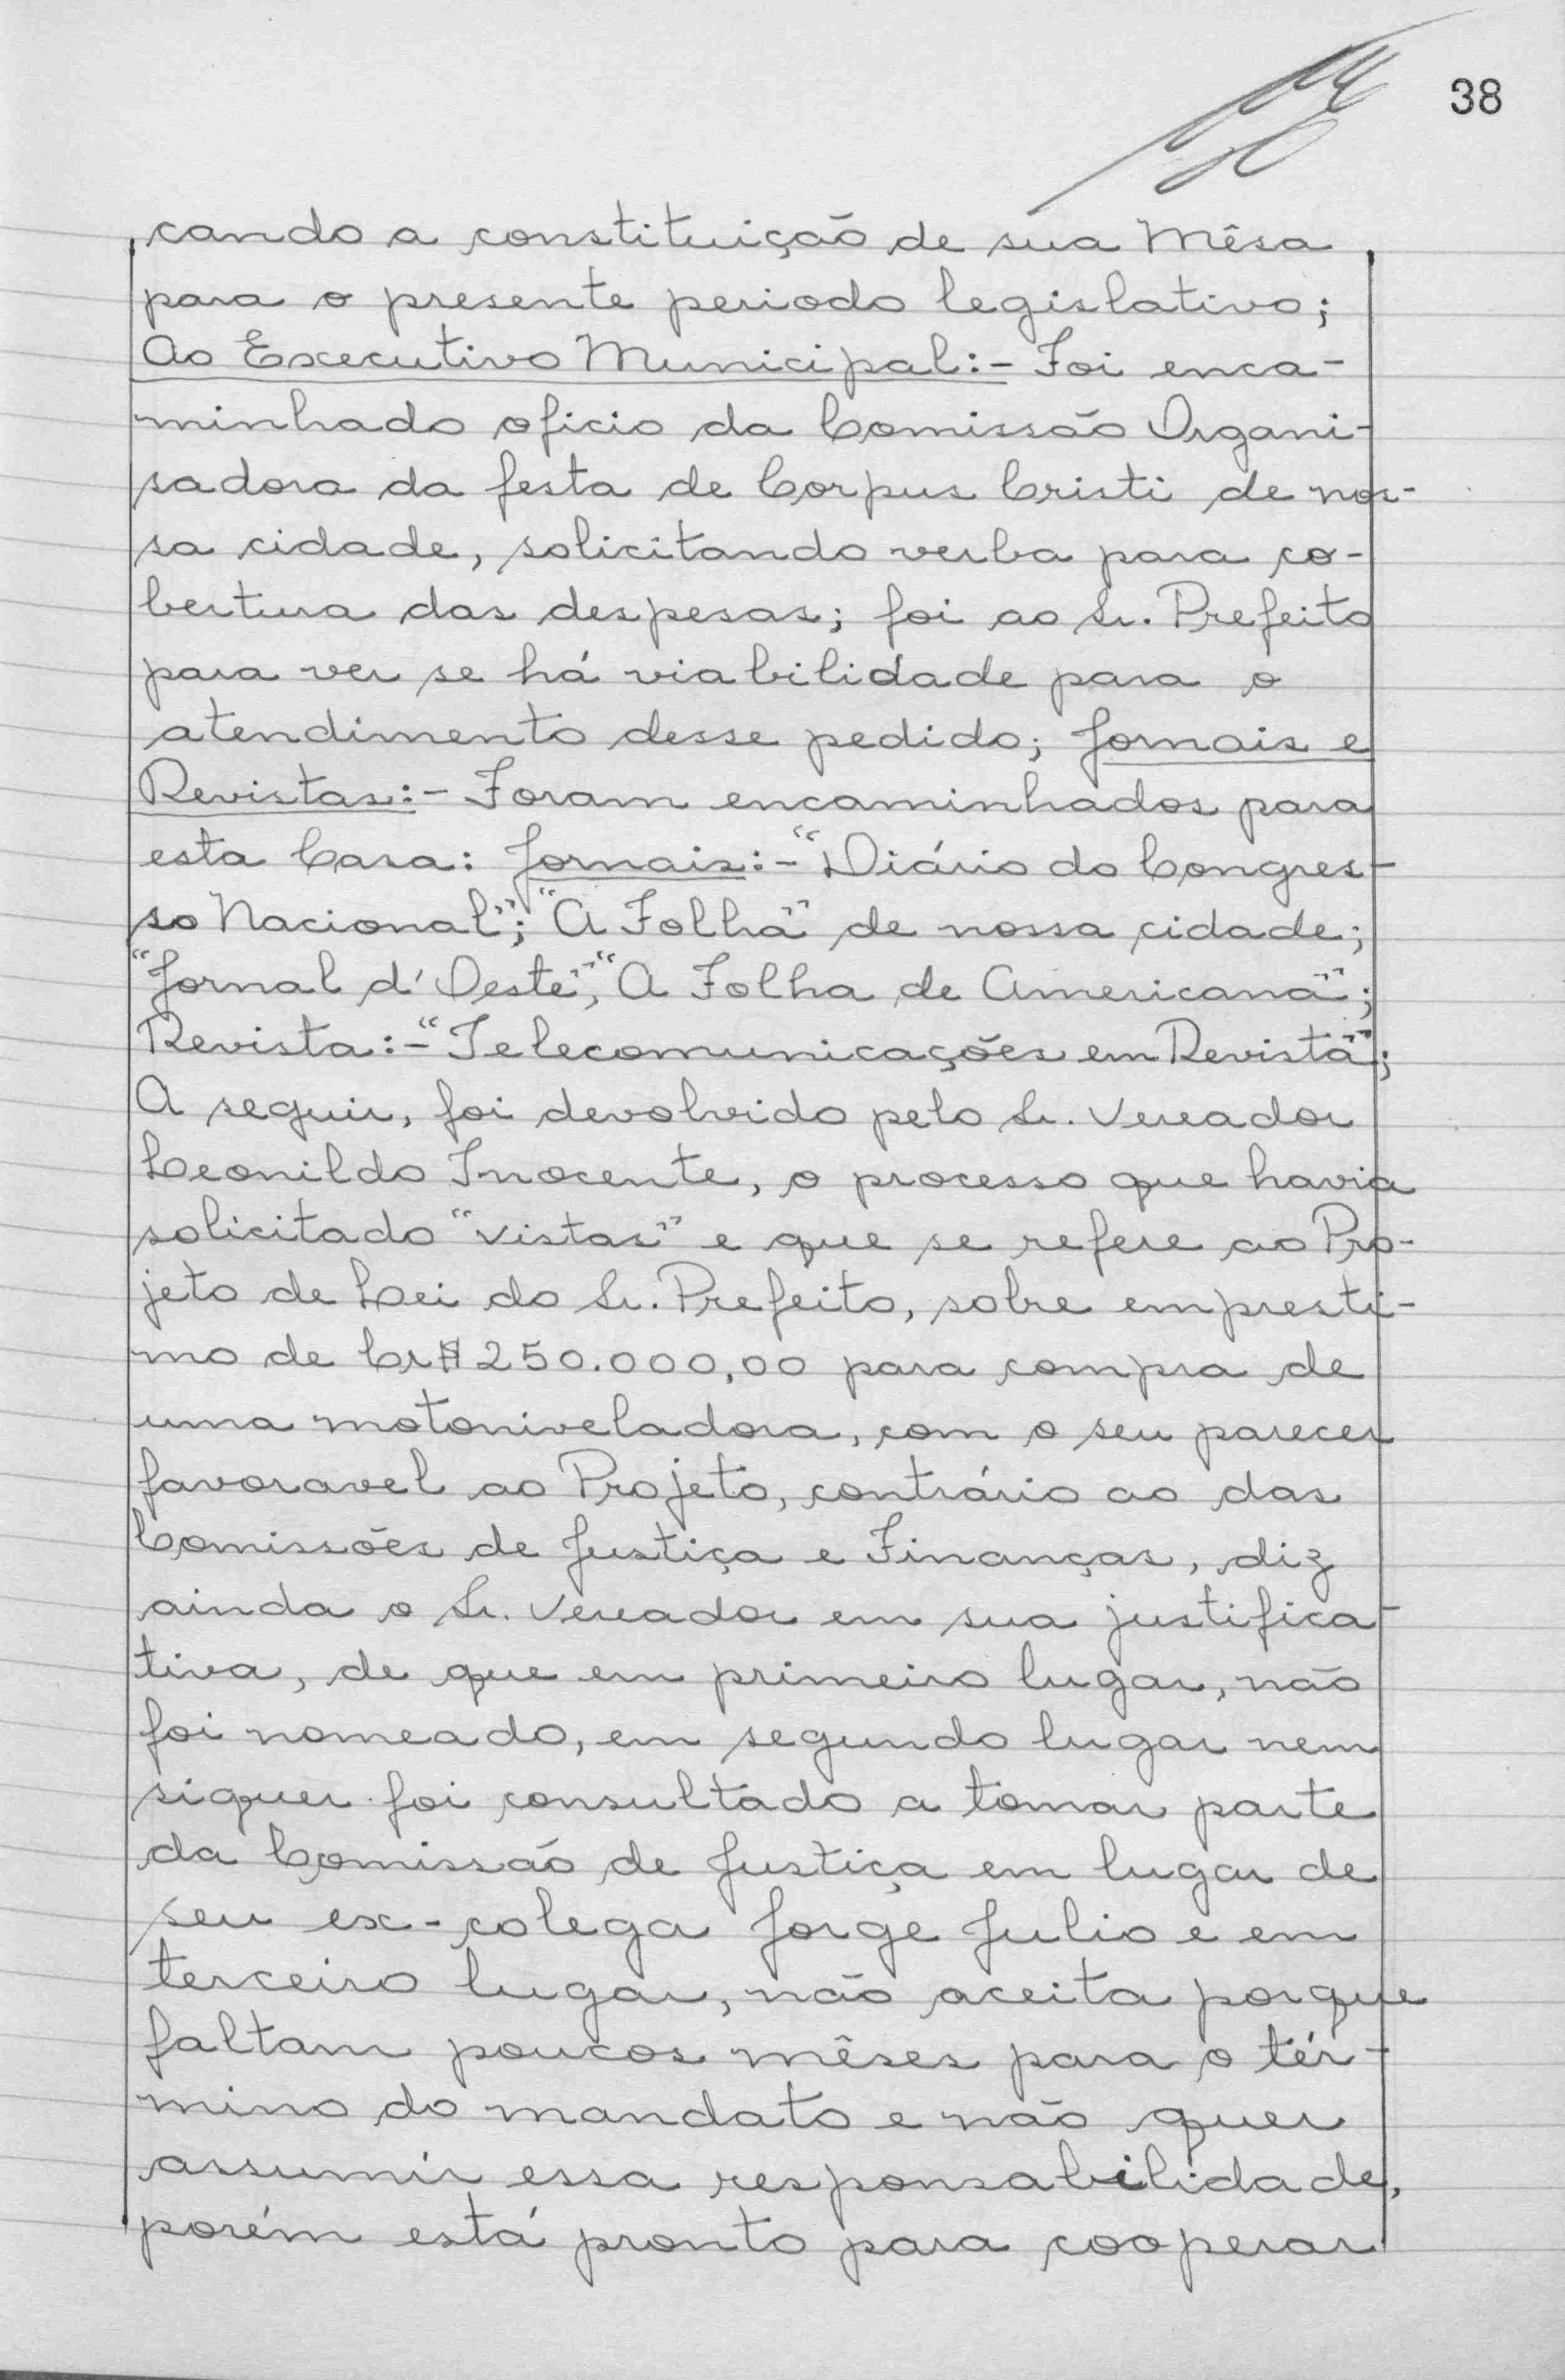 38
cando a constituição de sua Mêsa
para o presente periodo legislativo;
Ao Executivo Municipal:- Foi enca-
minhado oficio da Comissão Organi-
sadora da festa de Corpus Cristi de nos-
sa cidade, solicitando verba para co-
bertura das despesas; foi ao Sr. Prefeito
para ver se há viabilidade para o
atendimento desse pedido; Jornais e
Revistas:- Foram encaminhados para
esta Casa: Jornais:- "Diário do Congres-
so Nacional"; "A Folha" de nossa cidade;
"Jornal d'Oeste", "A Folha de Americana";
Revista:- "Telecomunicações em Revista";
A seguir, foi devolvido pelo Sr. Vereador
Leonildo Inocente, o processo que havia
solicitado "vistas" e que se refere ao Pro-
jeto de Lei do Sr. Prefeito, sobre empresti-
mo de Cr$ 250.000,00 para compra de
uma motoniveladora, com o seu parecer
favoravel ao Projeto, contrário ao das
Comissões de Justiça e Finanças, diz
ainda o Sr. Vereador em sua justifica-
tiva, de que em primeiro lugar, não
foi nomeado, em segundo lugar nem
siquer foi consultado a tomar parte
da Comissão de Justiça em lugar de
seu ex-colega Jorge Julio e em
terceiro lugar, não aceita porque
faltam poucos mêses para o tér-
mino do mandato e não quer
assumir essa responsabilidade,
porém está pronto para cooperar